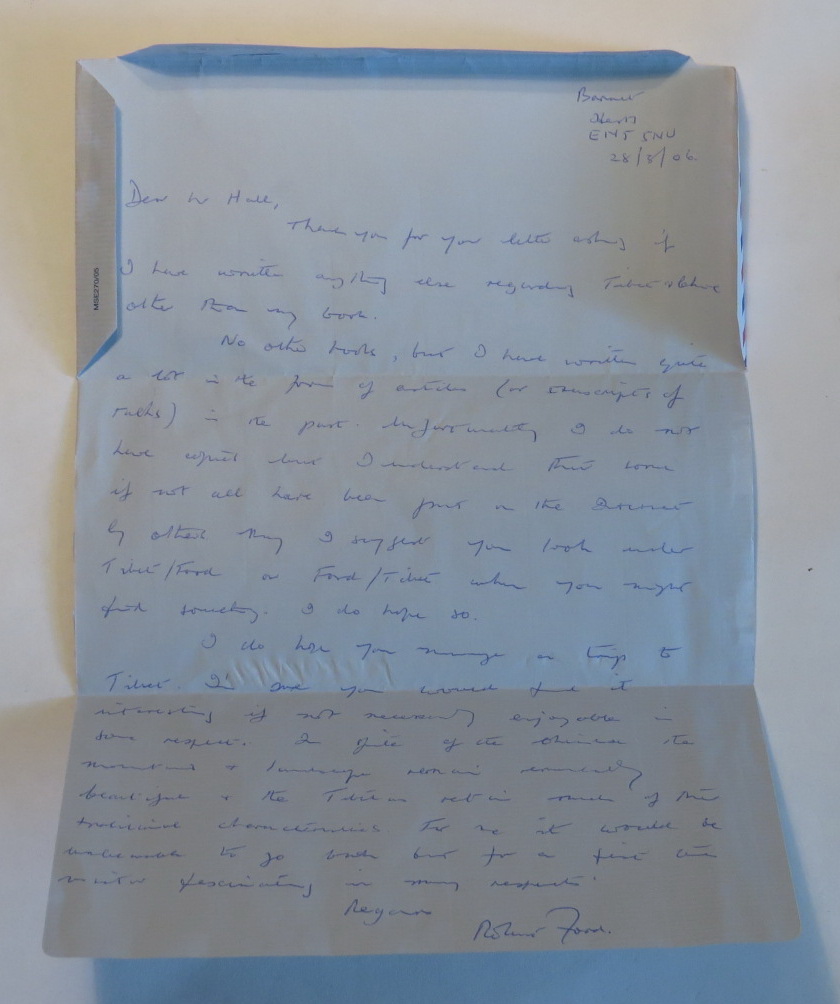 Barnet
Herts
EN5 5NU
28/8/06
Dear Mr Hall,
Thank you for your letter asking if
I have written anything else regarding Tibet
other than my book.
No other books, but I have written quite
a lot in the form of articles (or transcripts of
talks) in the past. Unfortunately I do not
have copies but I understand that some
if not all have been put on the Internet
by others. I suggest you look under
Tibet/Ford or Ford/Tibet when you might
find something. I do hope so.
I do hope you manage a trip to
Tibet. I'm sure you would find it
interesting if not necessarily enjoyable in
some respect. In spite of the Chinese the
mountains & landscape remain
beautiful & the Tibetans retain much of their
traditional characteristics. For me it would be
to go back but for a first time
visitor fascinating in many respects.
Regards
Robert Ford.
MSE270/05